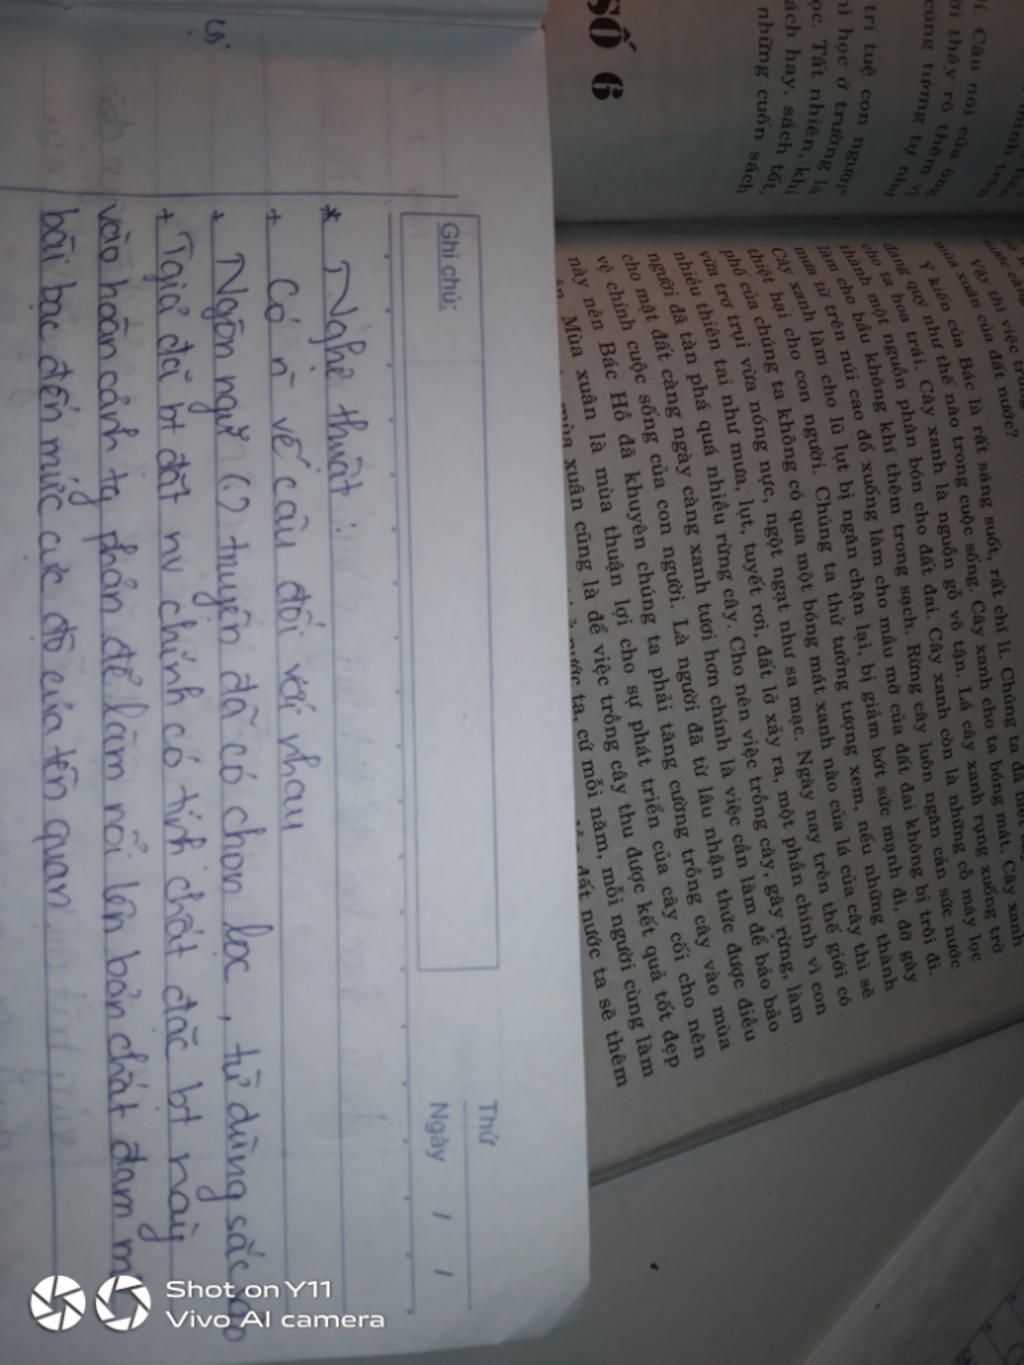 Ghi chú:
Thứ
Ngày / /
* Nghệ thuật:
+ Có n̄ vế câu đối với nhau
+ Ngôn ngữ (.) truyện đã có chọn lọc, từ dùng sắc sảo
+ Tgiả đã bt đặt nv chính có tính chất đặc bt này
vào hoàn cảnh tg phản để làm nổi lên bản chất đam mê
bài bạc đến mức cực độ của tên quan
SỐ 6
II. Câu nói của ông
thấy rõ thêm
cũng tương tự như
trí tuệ con người
học ở trường là
Tất nhiên, khi
sách hay, sách tốt,
những cuốn sách
Vậy thì việc trồng
mùa xuân của đất nước?
Ý kiến của Bác là rất sáng suốt, rất chí lí. Chúng ta đã biết
đáng quý như thế nào trong cuộc sống. Cây xanh cho ta bóng mát. Cây xanh
cho ta hoa trái. Cây xanh là nguồn gỗ vô tận. Lá cây xanh rụng xuống trở
thành một nguồn phân bón cho đất đai. Cây xanh còn là những cỗ máy lọc
làm cho bầu không khí thêm trong sạch. Rừng cây luôn ngăn cản sức nước
mưa từ trên núi cao đổ xuống làm cho mầu mỡ của đất đai không bị trôi đi.
Cây xanh làm cho lũ lụt bị ngăn chặn lại, bị giảm bớt sức mạnh đi, đỡ gây
thiệt hại cho con người. Chúng ta thử tưởng tượng xem, nếu những thành
phố của chúng ta không có qua một bóng mát xanh nào của lá của cây thì sẽ
vừa trơ trụi vừa nóng nực, ngột ngạt như sa mạc. Ngày nay trên thế giới có
nhiều thiên tai như mưa, lụt, tuyết rơi, đất lở xảy ra, một phần chính vì con
người đã tàn phá quá nhiều rừng cây. Cho nên việc trồng cây, gây rừng, làm
cho mặt đất càng ngày càng xanh tươi hơn chính là việc cần làm để bảo
vệ chính cuộc sống của con người. Là người đã từ lâu nhận thức được điều
này nên Bác Hồ đã khuyên chúng ta phải tăng cường trồng cây vào mùa
Mùa xuân là mùa thuận lợi cho sự phát triển của cây cối cho nên
mùa xuân cũng là để việc trồng cây thu được kết quả tốt đẹp
nước ta, cứ mỗi năm, mỗi người cùng làm
đất nước ta sẽ thêm
Shot on Y11
Vivo AI camera